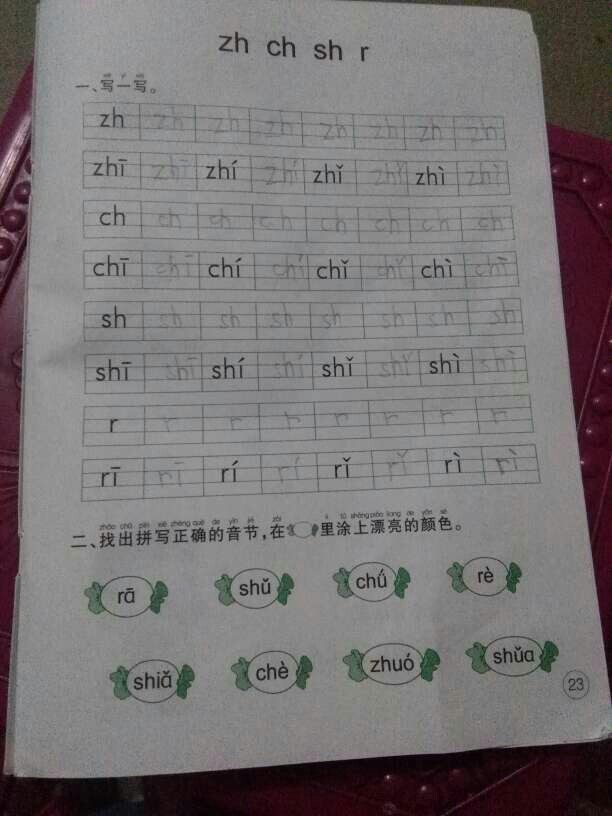 zh ch sh r
一、写一写。
zh zh zh zh zh zh zh zh
zhī zhī zhí zhí zhǐ zhǐ zhì zhì
ch ch ch ch ch ch ch ch
chī chī chí chí chǐ chǐ chì chì
sh sh sh sh sh sh sh sh
shī shī shí shí shǐ shǐ shì shì
r r r r r r r r
rī rī rí rí rǐ rǐ rì rì
zhǎo chū pīn xiě zhèng què de yīn jié zài lǐ tú shàng piào liang de yán sè
二、找出拼写正确的音节,在 里涂上漂亮的颜色。
rā shǔ chǘ rè
shiǎ chè zhuó shuǎ
23